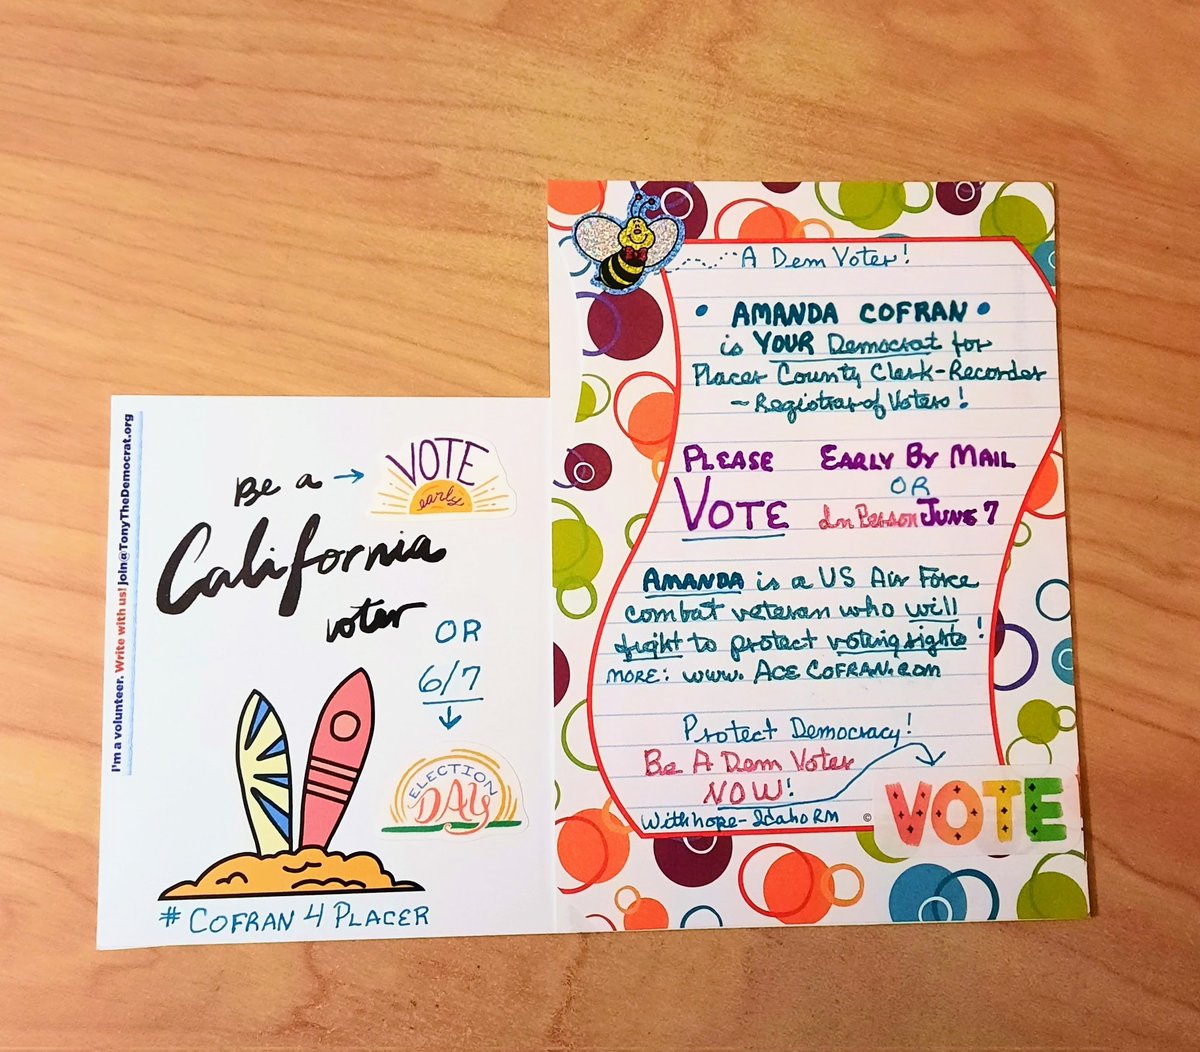 I'm a volunteer. Write with us! Join@TonyTheDemocrat.org
Be a →
VOTE
early
California
voter
OR
6/7
ELECTION
DAY
# COFRAN 4 PLACER
A Dem Voter!
• AMANDA COFRAN •
is YOUR Democrat for
Placer County Clerk-Recorder
- Registrar of Voters!
PLEASE EARLY BY MAIL
OR
VOTE In Person JUNE 7
AMANDA is a US Air Force
combat veteran who will
fight to protect voting rights!
MORE: www.ACECOFRAN.com
Protect Democracy!
Be A Dem Voter
NOW!
With hope - Idaho RM ©
VOTE